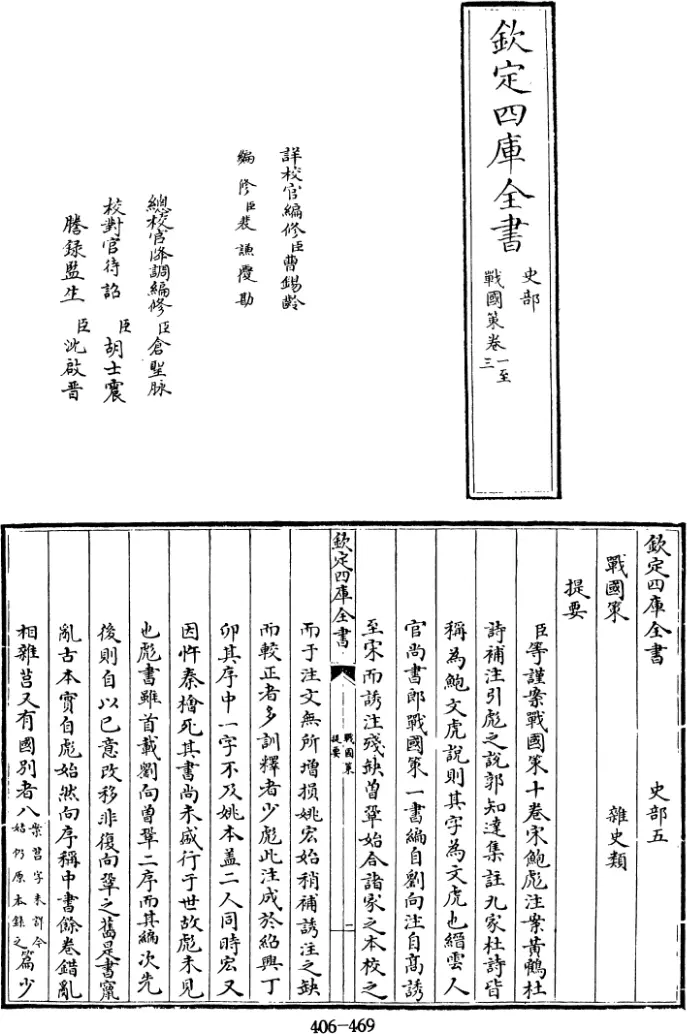 欽定四庫全書
史部
戰國策卷一至三
詳校官編修臣曹錫齡
編修臣裴謙覆勘
總校官降調編修臣倉聖脉
校對官待詔臣胡士震
謄録監生臣沈啟晋
欽定四庫全書
史部五
戰國策
雜史類
提要
臣等謹案戰國策十卷宋鮑彪注案黄鶴杜
詩補注引彪之說郭知達集註九家杜詩皆
稱為鮑文虎說則其字為文虎也縉雲人
官尚書郎戰國策一書編自劉向注自髙誘
至宋而誘注殘缺曾鞏始合諸家之本校之
欽定四庫全書
戰國策
提要
一
而于注文無所增損姚宏始稍補誘注之缺
而較正者多訓釋者少彪此注成於紹興丁
卯其序中一字不及姚本盖二人同時宏又
因忤秦檜死其書尚未盛行于世故彪未見
也彪書雖首載劉向曾鞏二序而其編次先
後則自以己意改移非復向鞏之舊是書竄
亂古本實自彪始然向序稱中書餘卷錯亂
相雜莒又有國別者八案莒字未詳今姑仍原本録之篇少
406-469